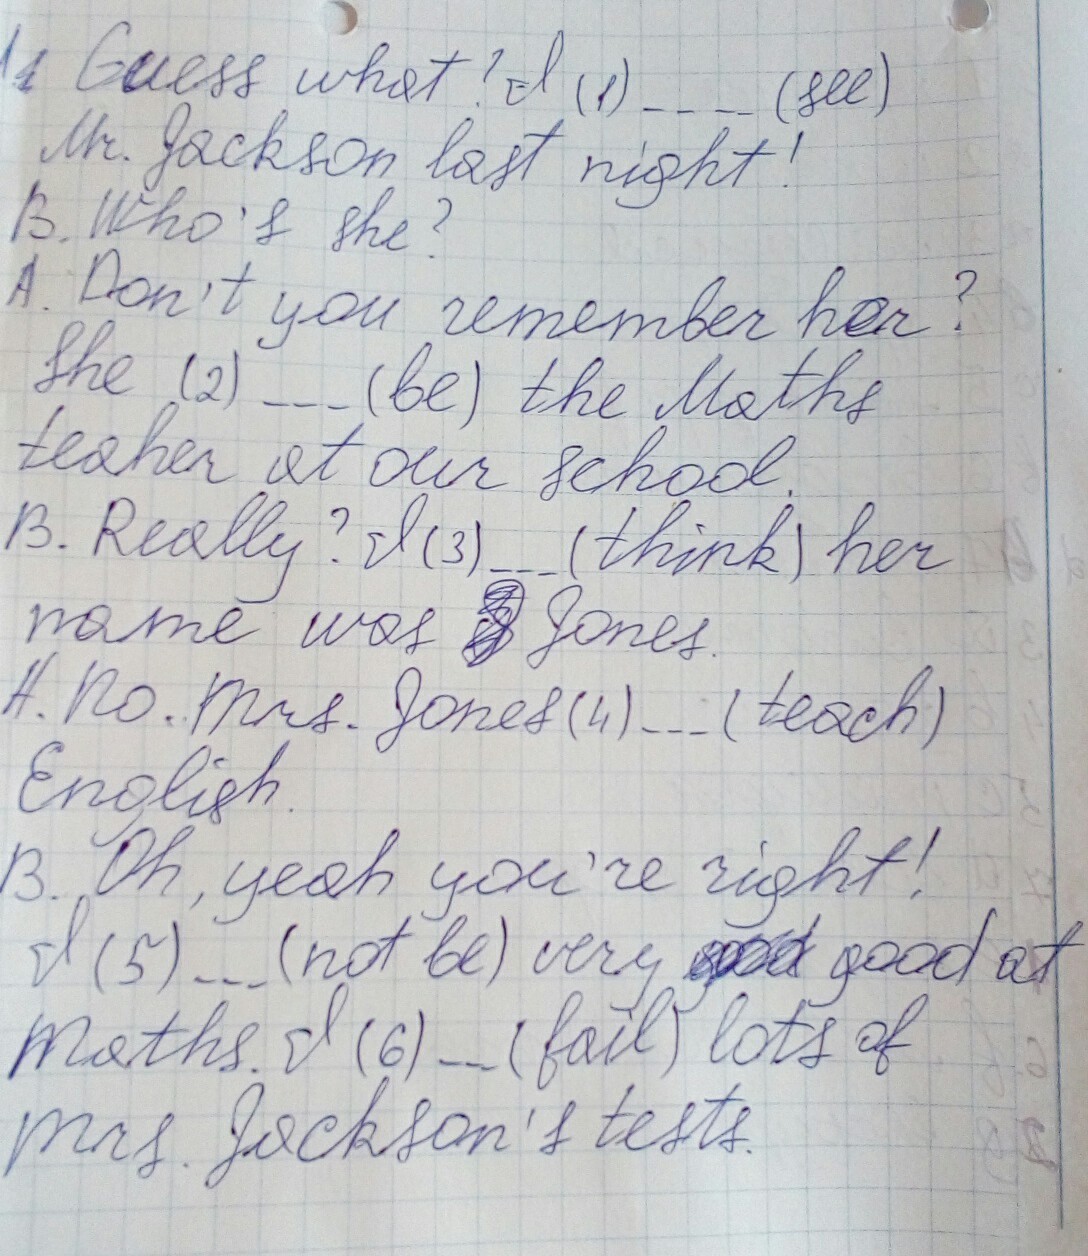 A Guess what? I (1) ____ (see)
Mr. Jackson last night!
B. Who's she?
A. Don't you remember her?
She (2) ___ (be) the Maths
teaher at our school.
B. Really? I (3) ___ (think) her
name was Jones.
A. No. Mrs. Jones (4) ___ (teach)
English.
B. Oh, yeah you're right!
I (5) ___ (not be) very good at
Maths. I (6) __ (fail) lots of
Mrs. Jackson's tests.